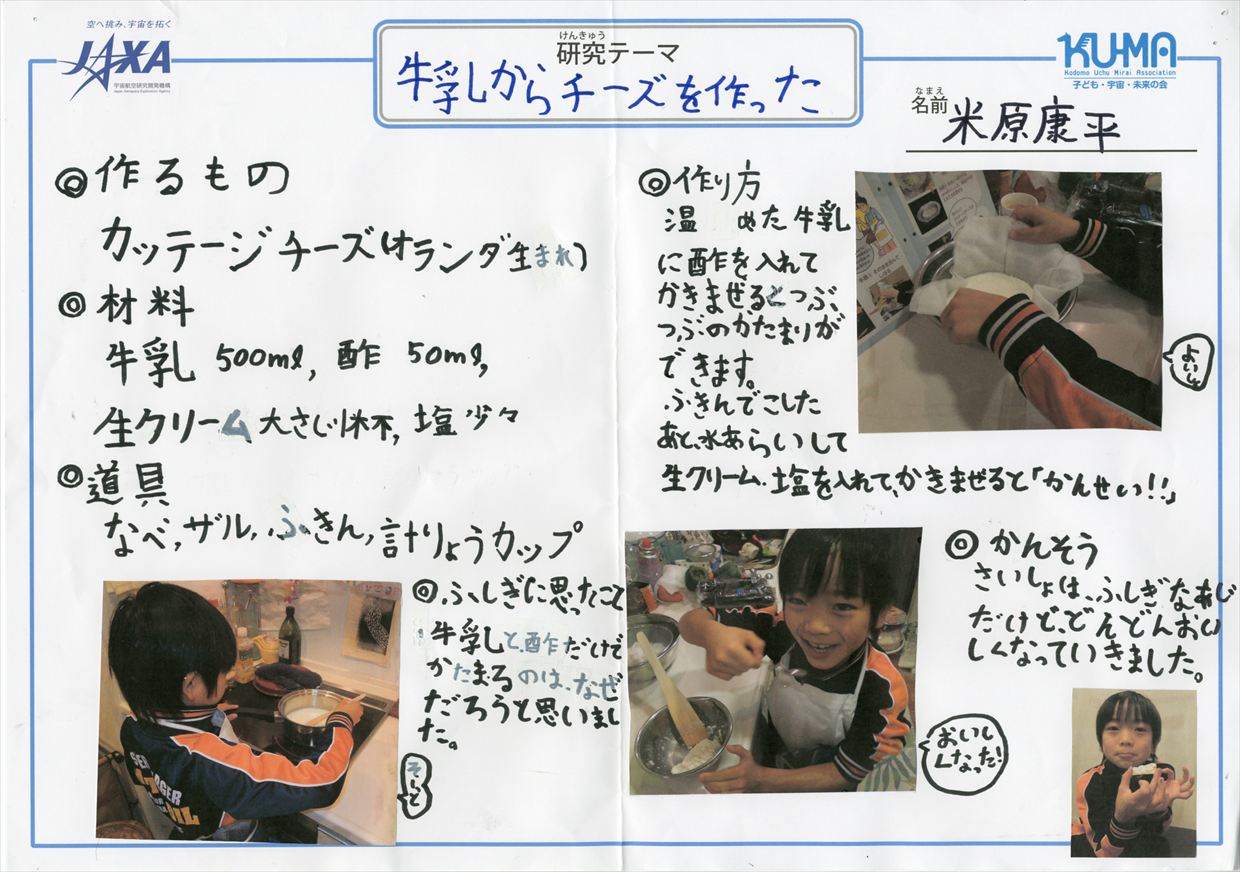 空へ挑み、宇宙を拓く
JAXA
宇宙航空研究開発機構
Japan Aerospace Exploration Agency
けんきゅう
研究テーマ
牛乳からチーズを作った
KU-MA
Kodomo Uchu Mirai Association
子ども・宇宙・未来の会
なまえ
名前
米原康平
◎作るもの
カッテージチーズ(オランダ生まれ)
◎材料
牛乳 500ml, 酢 50ml,
生クリーム 大さじ1杯, 塩少々
◎道具
なべ, ザル, ふきん, 計りょうカップ
◎ふしぎに思ったこと
牛乳と、酢だけで
かたまるのは、なぜ
だろうと思いまし
た。
そーと
◎作り方
温めた牛乳
に酢を入れて
かきまぜるとつぶ、
つぶのかたまりが
できます。
ふきんでこした
あと、水あらいして
生クリーム、塩を入れて、かきまぜると「かんせい!!」
よいしょ
おいし
くなった!
◎かんそう
さいしょは、ふしぎなあじ
だけど、どんどんおい
しくなっていきました。